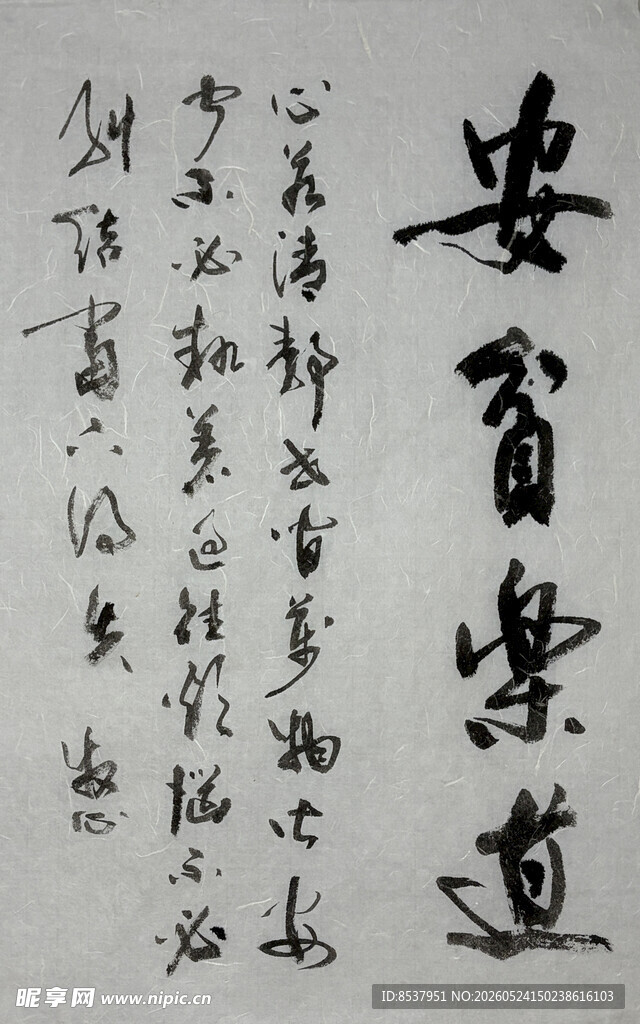 安貧樂道
心若清靜世間萬物皆安
宁不必執着過往煩惱不必
糾結當下得失
昵享网 www.nipic.cn
ID:8537951 NO:20260524150238616103